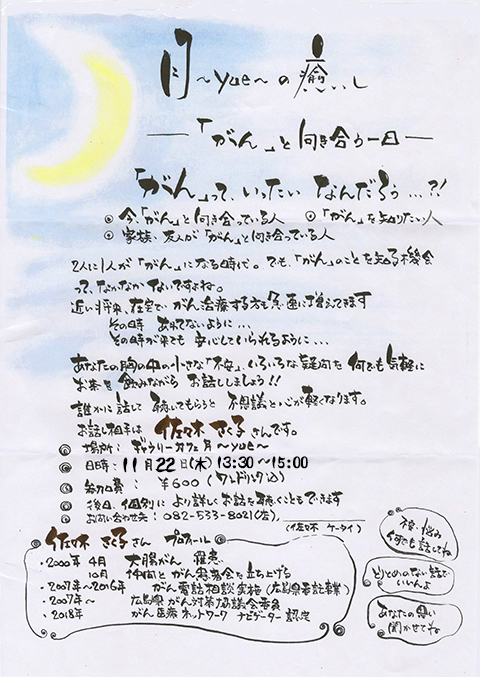 月～yue～の癒いし
―「がん」と向き合う一日―
「がん」って、いったい なんだろう…?!
◎今、「がん」と向き合っている人 ◎「がん」を知りたい人
◎家族、友人が「がん」と向き合っている人
2人に1人が「がん」になる時代。でも、「がん」のことを知る機会
って、なかなかないですよね。
近い将来、在宅でがん治療する方も急速に増えてきます
その時 あわてないように…
その時が来ても 安心していられるように…
あなたの胸の中の小さな「不安」、いろいろな疑問を 何でも気軽に
お茶を飲みながら お話ししましょう!!
誰かに話して 聴いてもらうと 不思議と心が軽くなります。
お話し相手は 佐々木 さく子 さんです。
◎場所: ギャラリーカフェ 月～yue～
◎日時: 11月22日(木) 13:30～15:00
◎参加費: ¥600 (ワンドリンク込)
◎後日、個別に より詳しくお話を聴くこともできます
◎お問い合わせ先: 082-533-8021(店)、
(佐々木 ケータイ)
佐々木 さく子さん プロフィール
・2000年 4月 大腸がん 罹患
10月 仲間と がん患者会を立ち上げる
・2007年～2016年 がん電話相談実施(広島県委託事業)
・2007年～ 広島県 がん対策協議会委員
・2018年 がん医療 ネットワーク ナビゲーター 認定
不安、悩み
何でも話してね
とりとめのない話で
いいんよ
あなたの思い
聞かせてね